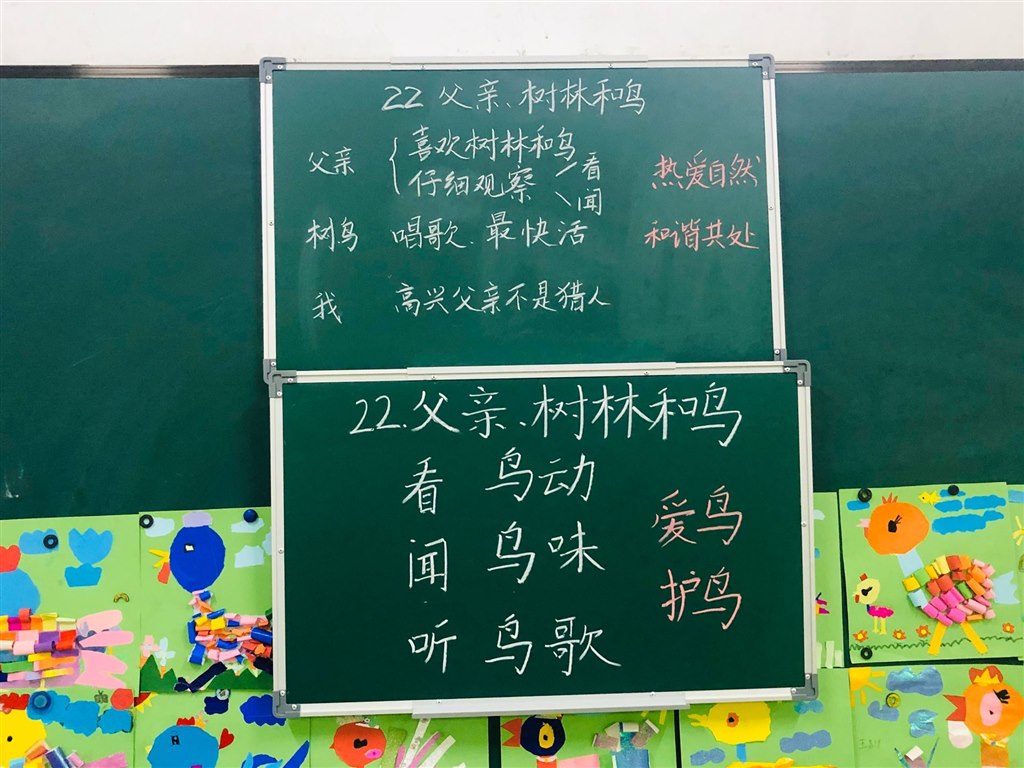 22 父亲、树林和鸟
父亲 { 喜欢树林和鸟
仔细观察 看
闻
热爱自然
树鸟 唱歌、最快活
和谐共处
我 高兴父亲不是猎人
22.父亲、树林和鸟
看 鸟动
闻 鸟味
听 鸟歌
爱鸟
护鸟